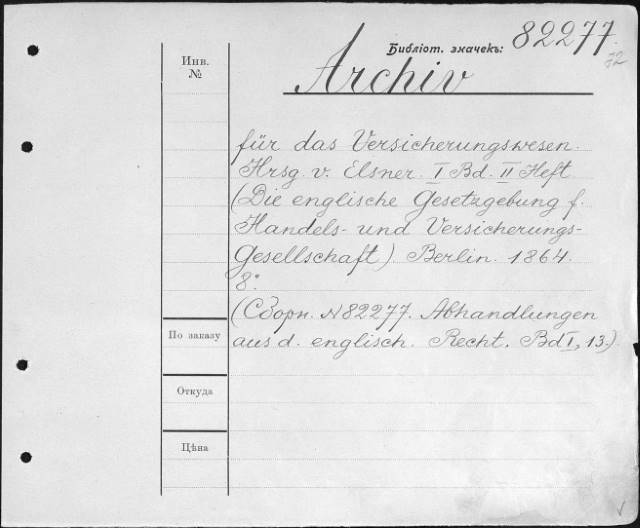 Библіот. значекъ: 82277.
32
Archiv
Инв.
№
für das Versicherungswesen.
Hrsg. v. Elsner. I Bd. II Heft
(Die englische Gesetzgebung f.
Handels- und Versicherungs-
Gesellschaft) Berlin. 1864.
8°.
(Сборн. №82277. Abhandlungen
aus d. englisch. Recht. Bd I, 13.)
По заказу
Откуда
Цѣна